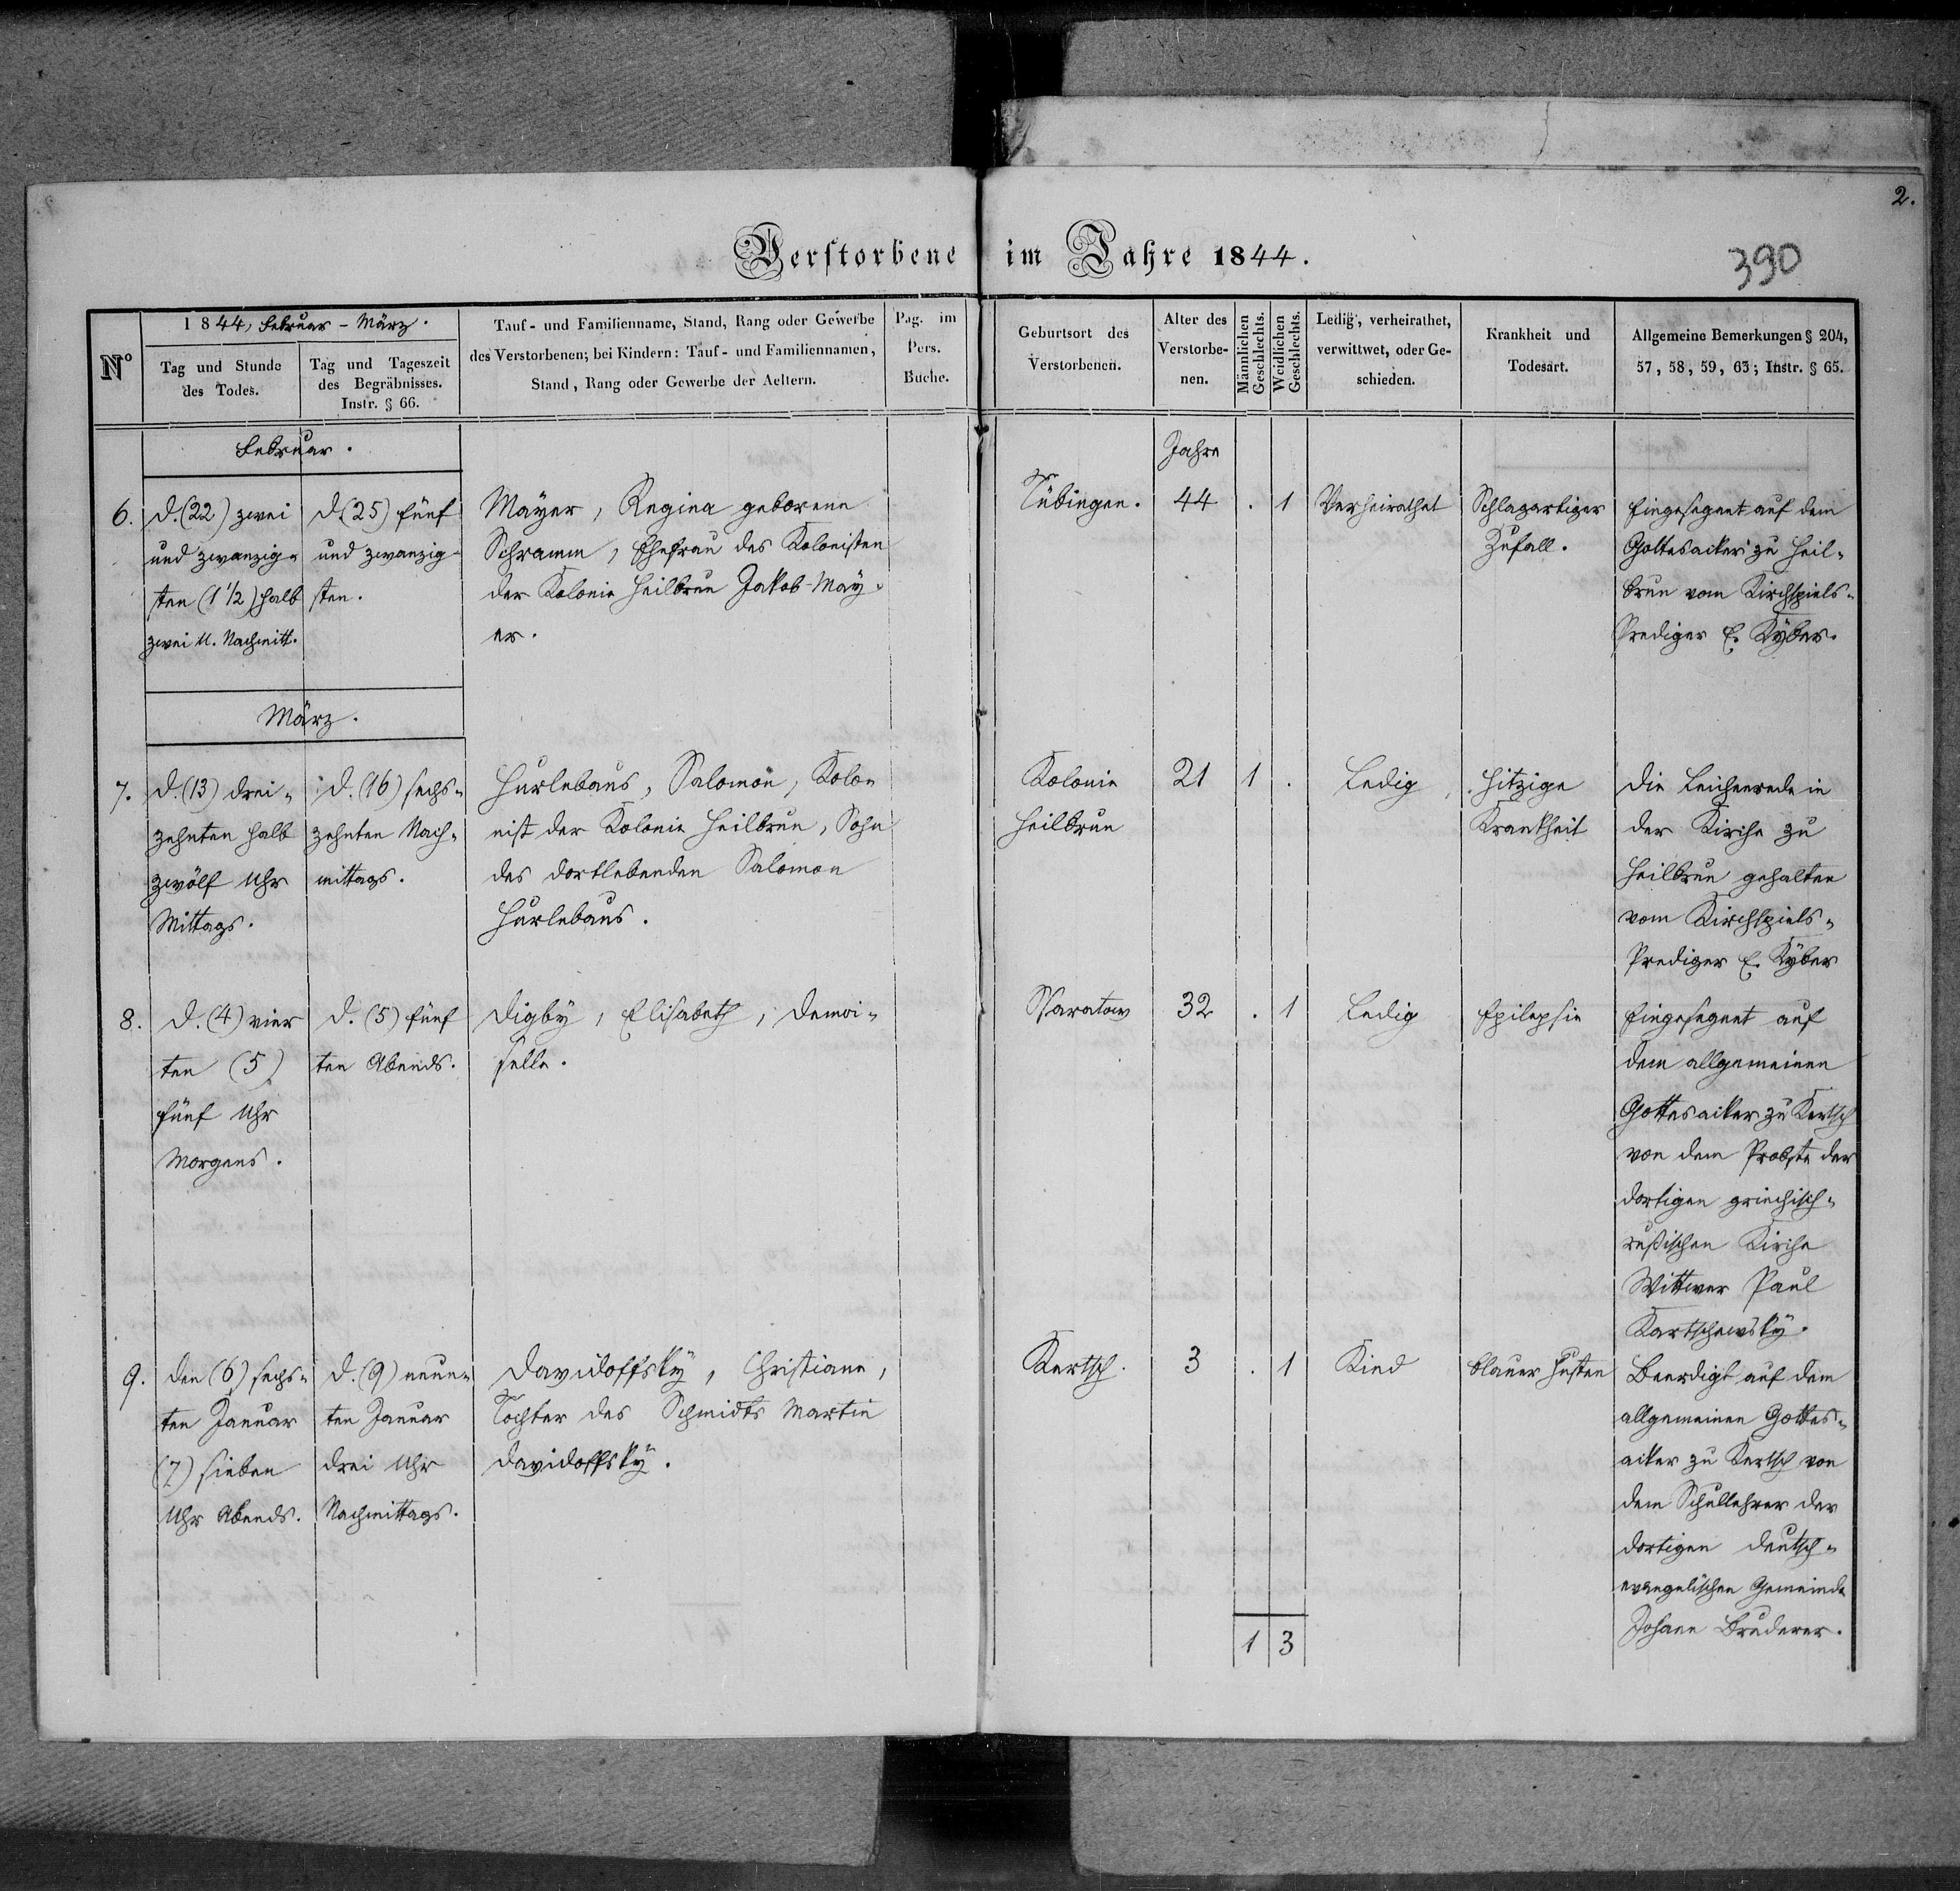 2.
Verstorbene im Jahre 1844.
390
No
1844, Februar - März.
Tag und Stunde
des Todes.
Tag und Tageszeit
des Begräbnisses.
Instr. § 66.
Tauf- und Familienname, Stand, Rang oder Gewerbe
des Verstorbenen; bei Kindern: Tauf- und Familiennamen,
Stand, Rang oder Gewerbe der Aeltern.
Pag. im
Pers.
Buche.
Geburtsort des
Verstorbenen.
Alter des
Verstorbe-
nen.
Männlichen
Geschlechts.
Weidlichen
Geschlechts.
Ledig, verheirathet,
verwittwet, oder Ge-
schieden.
Krankheit und
Todesart.
Allgemeine Bemerkungen § 204,
57, 58, 59, 63; Instr. § 65.
Februar.
Jahre
6.
d. (22) zwei
und zwanzig-
sten (1 1/2) halb
zwei U. Nachmitt.
d. (25) fünf
und zwanzig-
sten.
Mayer, Regina geborene
Schramm, Ehefrau des Kolonisten
der Kolonie Heilbrun Jakob May-
er.
Tübingen.
44
.
1
Verheirathet
Schlagartiger
Zufall.
Eingesegnet auf dem
Gottesacker zu Heil-
brun vom Kirchspiels-
Prediger E. Kyber.
März.
7.
d. (13) drei-
zehnten halb
zwölf Uhr
Mittags.
d. (16) sechs-
zehnten Nach-
mittags.
Hurlebaus, Salomon, Kolo-
nist der Kolonie Heilbrun, Sohn
des dortlebenden Salomon
Hurlebaus.
Kolonie
Heilbrun
21
1
.
Ledig
Hitzige
Krankheit
Die Leichenrede in
der Kirche zu
Heilbrun gehalten
vom Kirchspiels-
Prediger E. Kyber
8.
d. (4) vier
ten (5)
fünf Uhr
Morgens.
d. (5) fünf
ten Abends.
Digby, Elisabeth, Demoi-
selle.
Ssaratow
32
.
1
Ledig
Epilepsie
Eingesegnet auf
dem allgemeinen
Gottesacker zu Kertsch
von dem Probste der
dortigen griechisch-
rußischen Kirche
Wittwer Paul
Kartschewsky.
9.
den (6) sechs-
ten Januar
(7) sieben
Uhr Abends.
d. (9) neun-
ten Januar
drei Uhr
Nachmittags.
Davidoffsky, Christiane,
Tochter des Schmidts Martin
Davidoffsky.
Kertsch.
3
.
1
Kind
blauer Husten
Beerdigt auf dem
allgemeinen Gottes-
acker zu Kertsch von
dem Schullehrer der
dortigen deutsch-
evangelischen Gemeinde
Johann Bruderer.
1
3